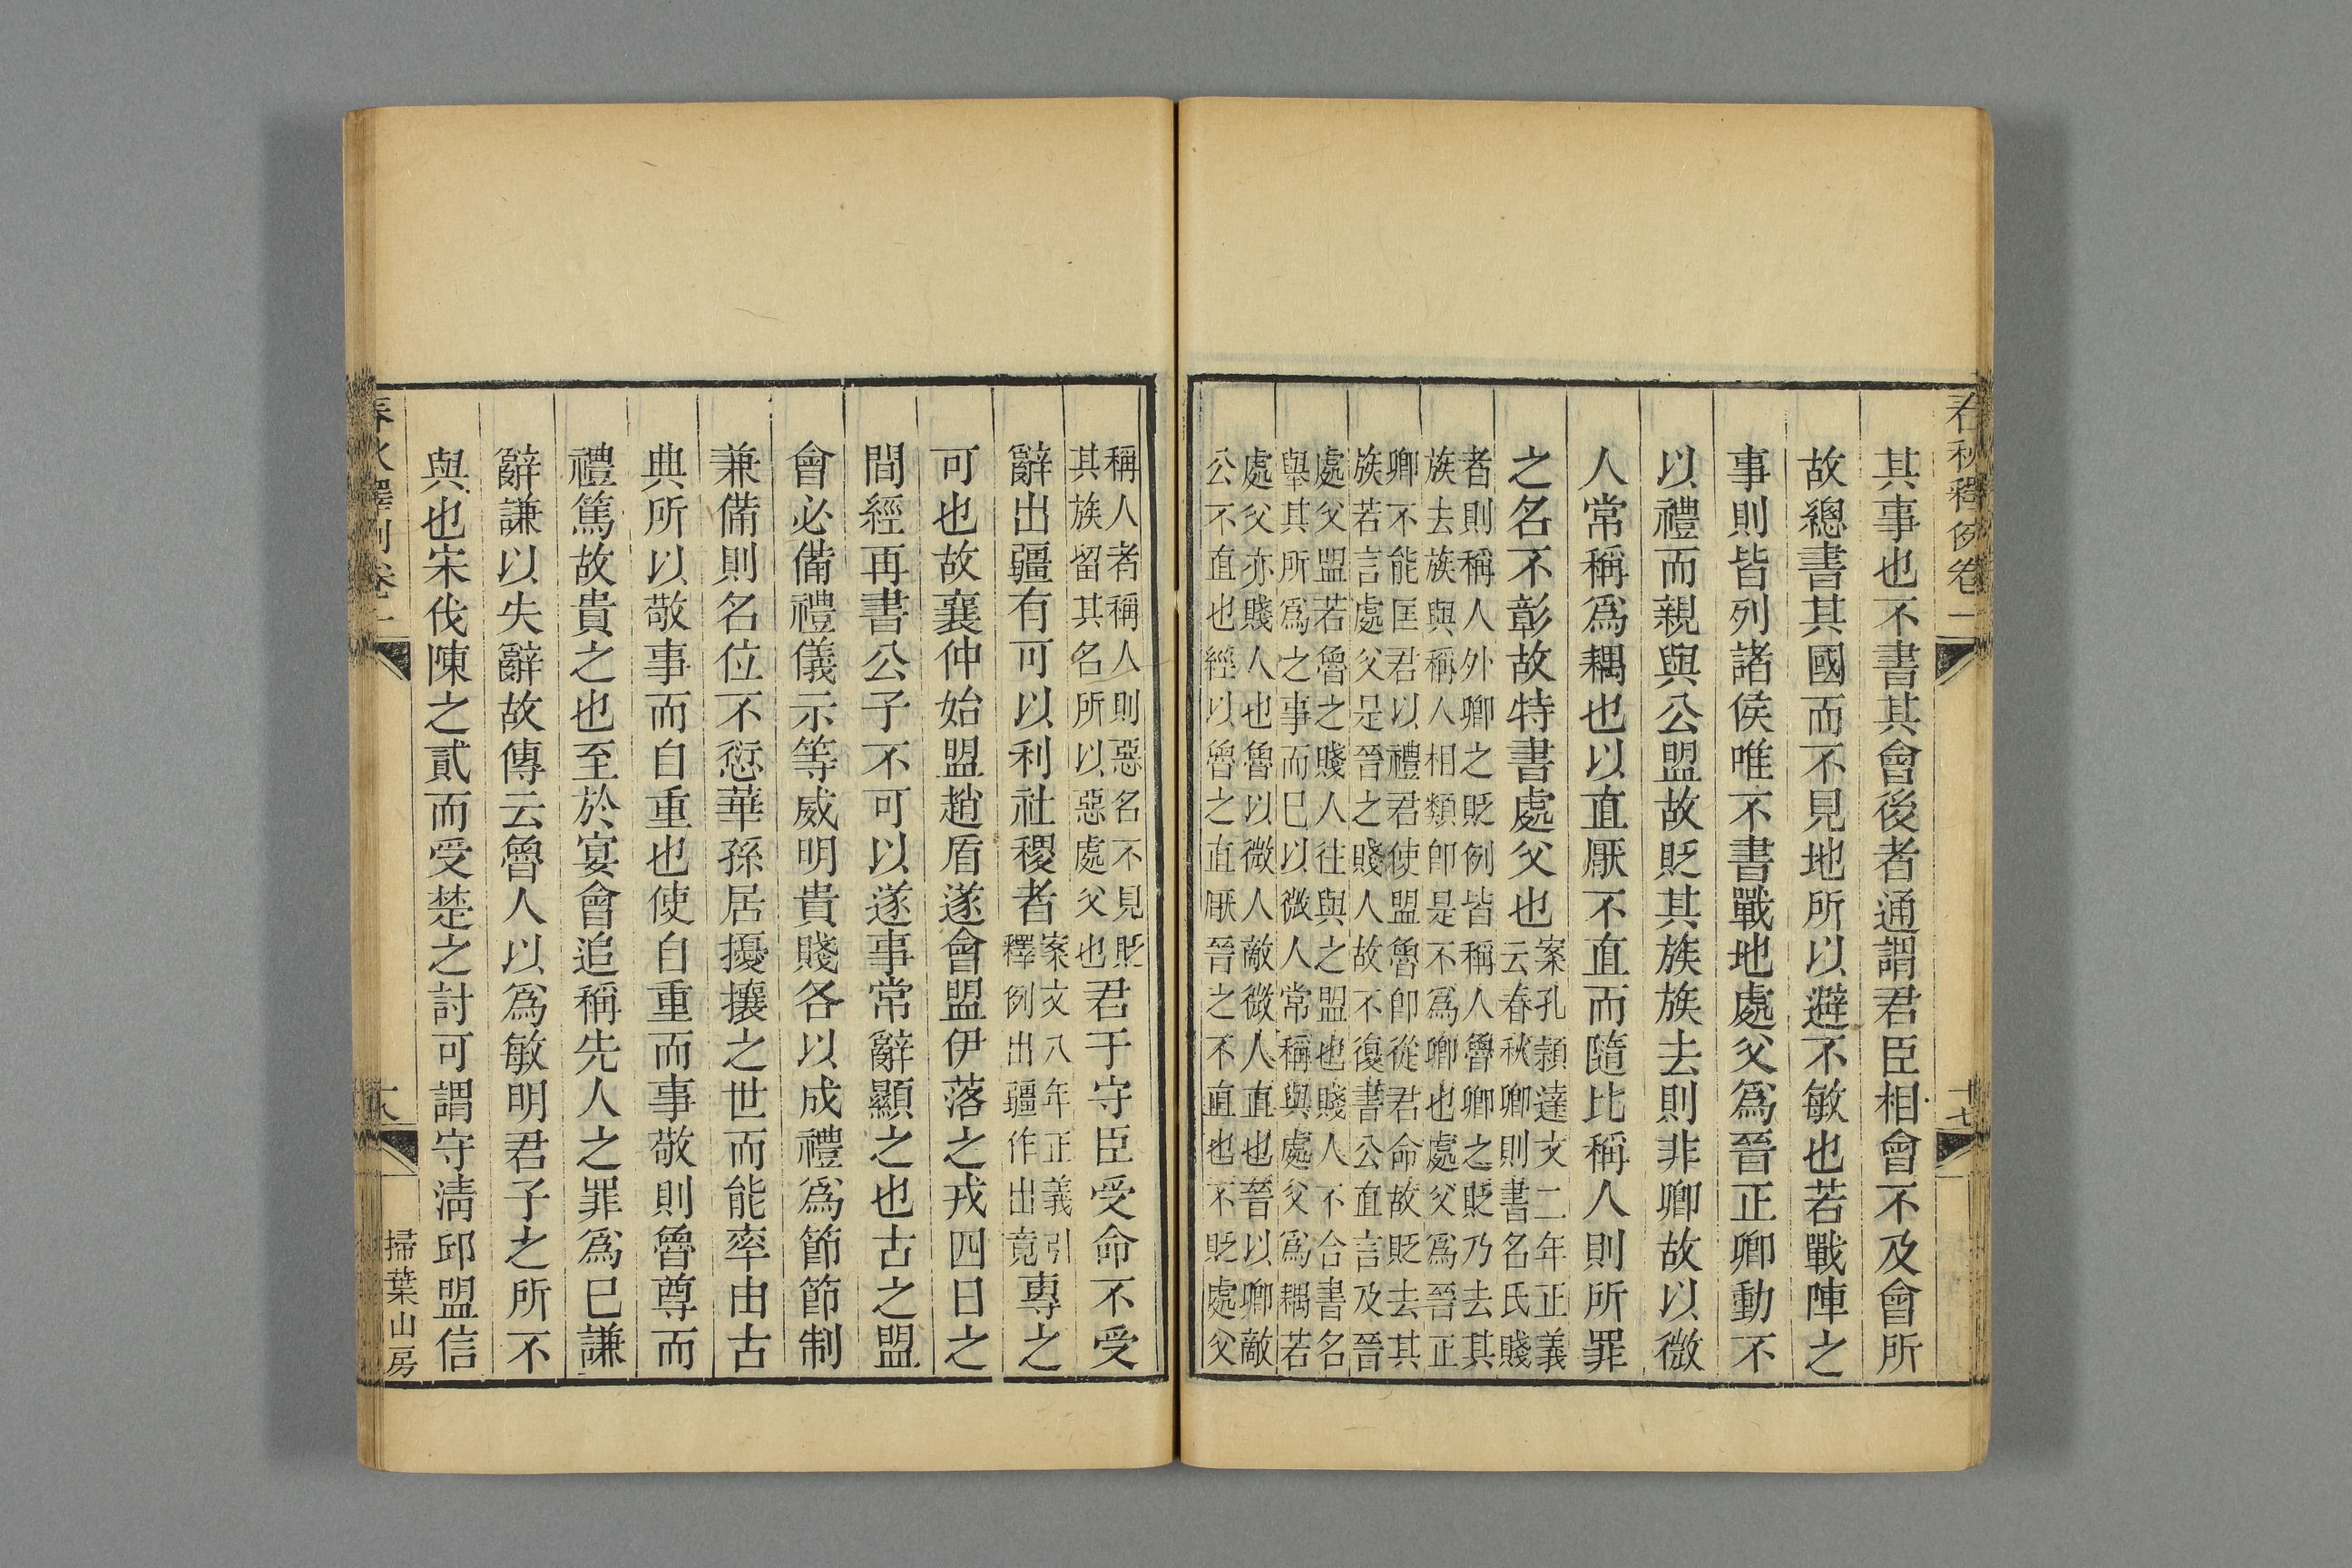 春秋釋例卷一
十七
其事也不書其會後者通謂君臣相會不及會所
故總書其國而不見地所以避不敏也若戰陣之
事則皆列諸侯唯不書戰地處父爲晉正卿動不
以禮而親與公盟故貶其族族去則非卿故以微
人常稱爲耦也以直厭不直而隨比稱人則所罪
之名不彰故特書處父也
案孔頴達文二年正義
云春秋卿則書名氏賤
者則稱人外卿之貶例皆稱人魯卿之貶乃去其
族去族與稱人相類卽是不爲卿也處父爲晉正
卿不能匡君以禮君使盟魯卽從君命故貶去其
族若言處父是晉之賤人故不復書公直言及晉
處父盟若魯之賤人往與之盟也賤人不合書名
舉其所爲之事而巳以微人常稱與處父爲耦若
處父亦賤人也魯以微人敵微人直也晉以卿敵
公不直也經以魯之直厭晉之不直也不貶處父
稱人者稱人則惡名不見貶
其族留其名所以惡處父也
君于守臣受命不受
辭出疆有可以利社稷者
案文八年正義引
釋例出疆作出竟
專之
可也故襄仲始盟趙盾遂會盟伊落之戎四日之
間經再書公子不可以遂事常辭顯之也古之盟
會必備禮儀示等威明貴賤各以成禮爲節節制
兼備則名位不愆華孫居擾攘之世而能率由古
典所以敬事而自重也使自重而事敬則魯尊而
禮篤故貴之也至於宴會追稱先人之罪爲巳謙
辭謙以失辭故傳云魯人以爲敏明君子之所不
與也宋伐陳之貳而受楚之討可謂守淸邱盟信
春秋釋例卷一
掃葉山房